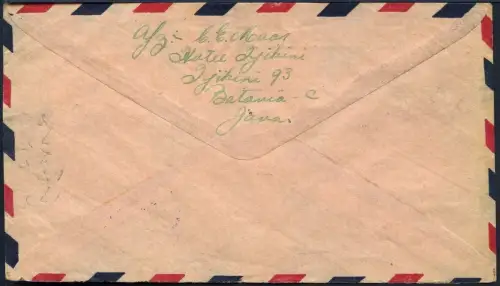 Afz:- C.E. Maas
Hotel Tjikini
Tjikini 93
Batavia-C
Java.